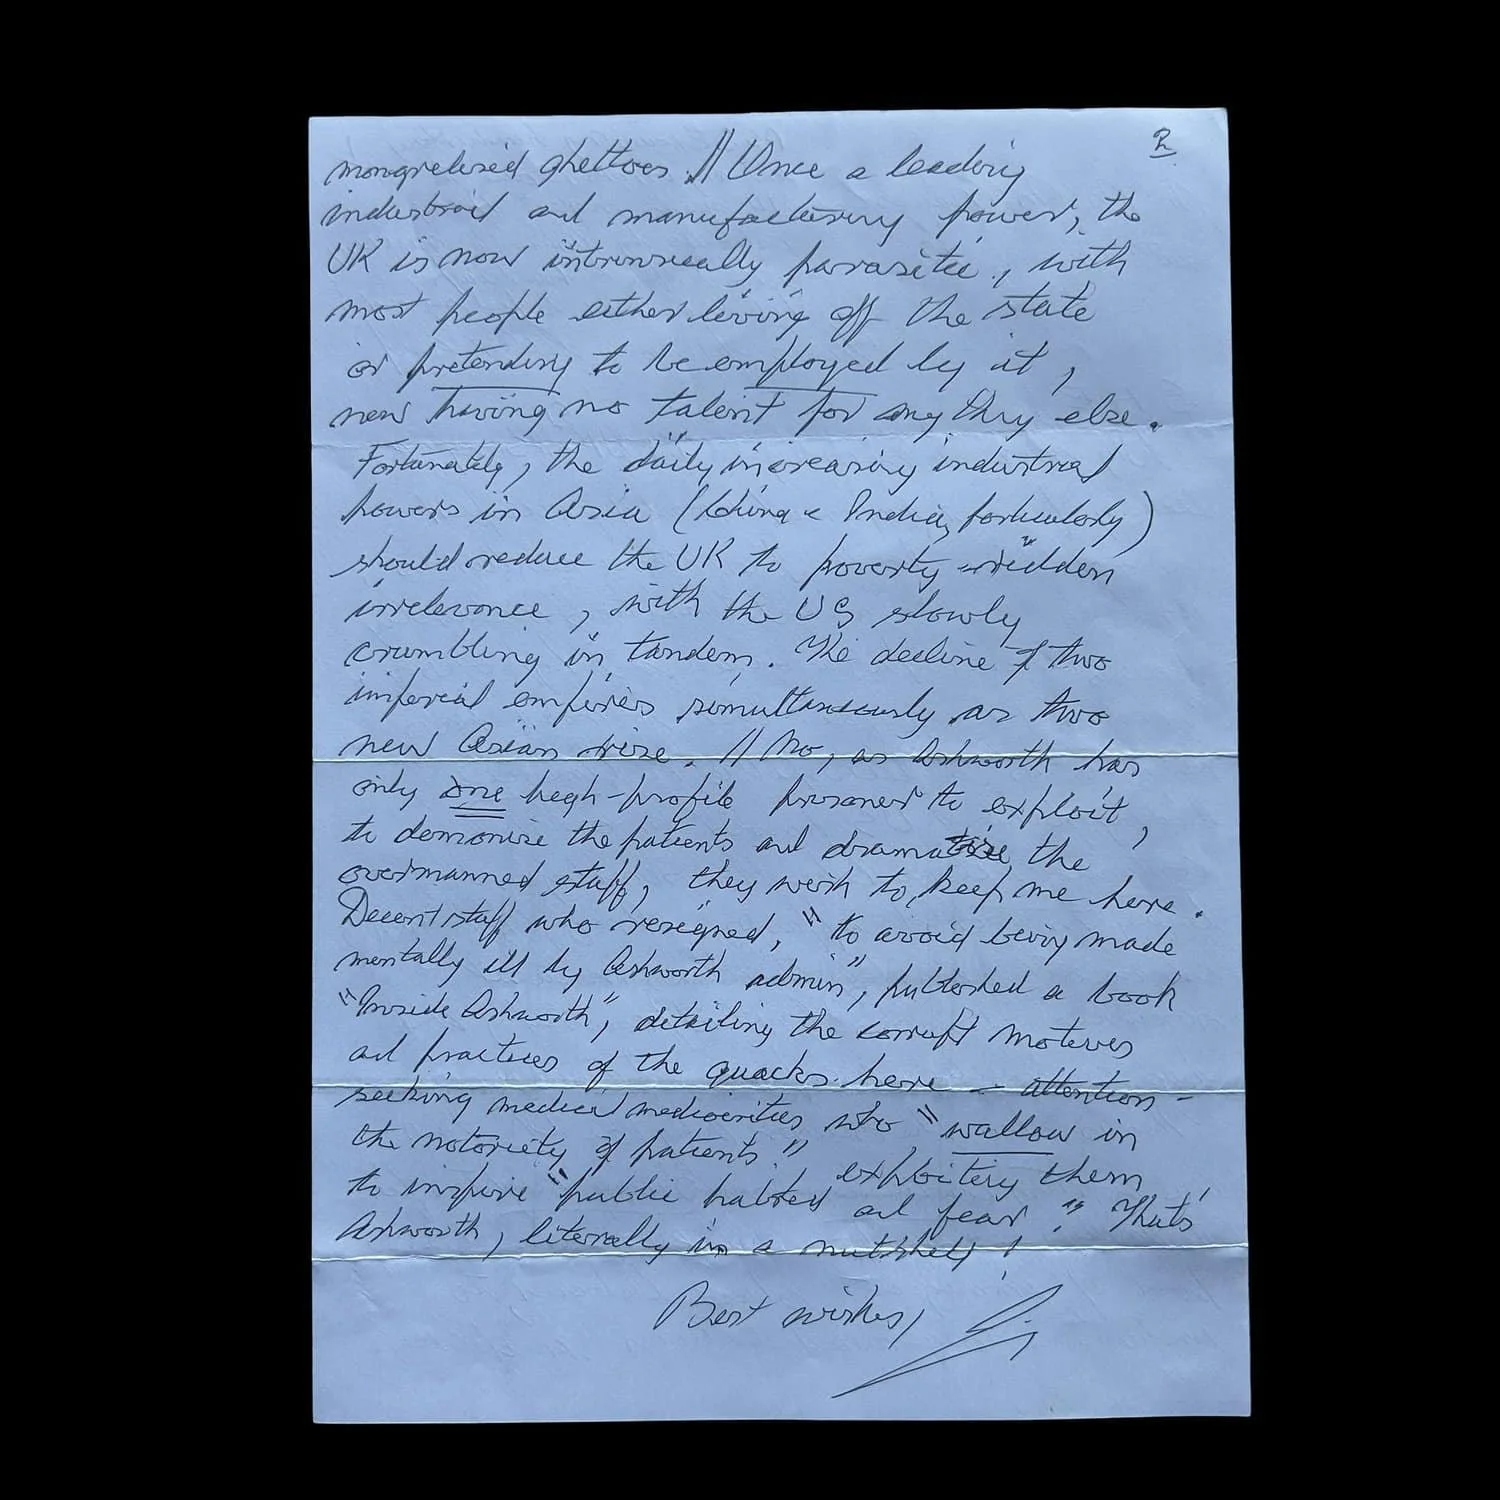 2
mongrelised ghettoes. // Once a leading
industrial and manufacturing power, the
UK is now intrinsically parasitic, with
most people either living off the state
or pretending to be employed by it,
now having no talent for anything else.
Fortunately, the daily increasing industrial
powers in Asia (China & India, particularly)
should reduce the UK to poverty-ridden
irrelevance, with the US slowly
crumbling in tandem. The decline of two
imperial empires simultaneously as two
new Asian rise. // No, as Ashworth has
only one high-profile prisoner to exploit,
to demonise the patients and dramatise the
overmanned staff, they wish to keep me here.
Decent staff who resigned, "to avoid being made
mentally ill by Ashworth admin", published a book
"Inside Ashworth", detailing the corrupt motives
and practices of the quacks here – attention-
seeking medical mediocrities who "wallow in
the notoriety of patients" exploiting them
to inspire "public hatred and fear". That's
Ashworth, literally in a nutshell!
Best wishes,